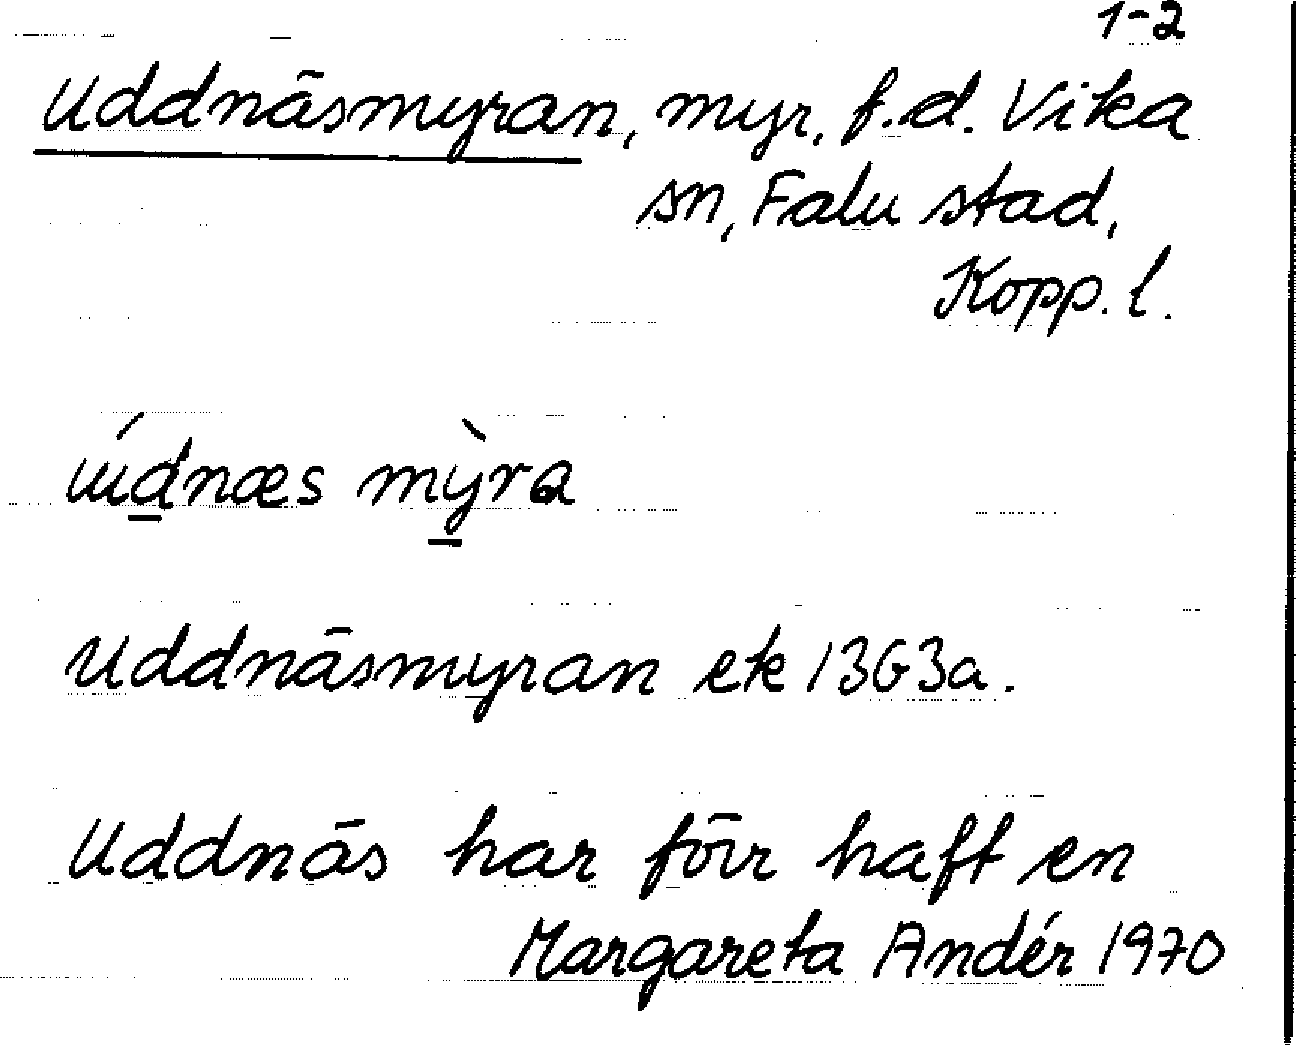 1-2
Uddnäsmyran, myr, f.d. Vika
sn, Falu stad,
Kopp. l.
údnæs mỳra
Uddnäsmyran ek 13G3a.
Uddnäs har förr haft en
Margareta Andér 1970